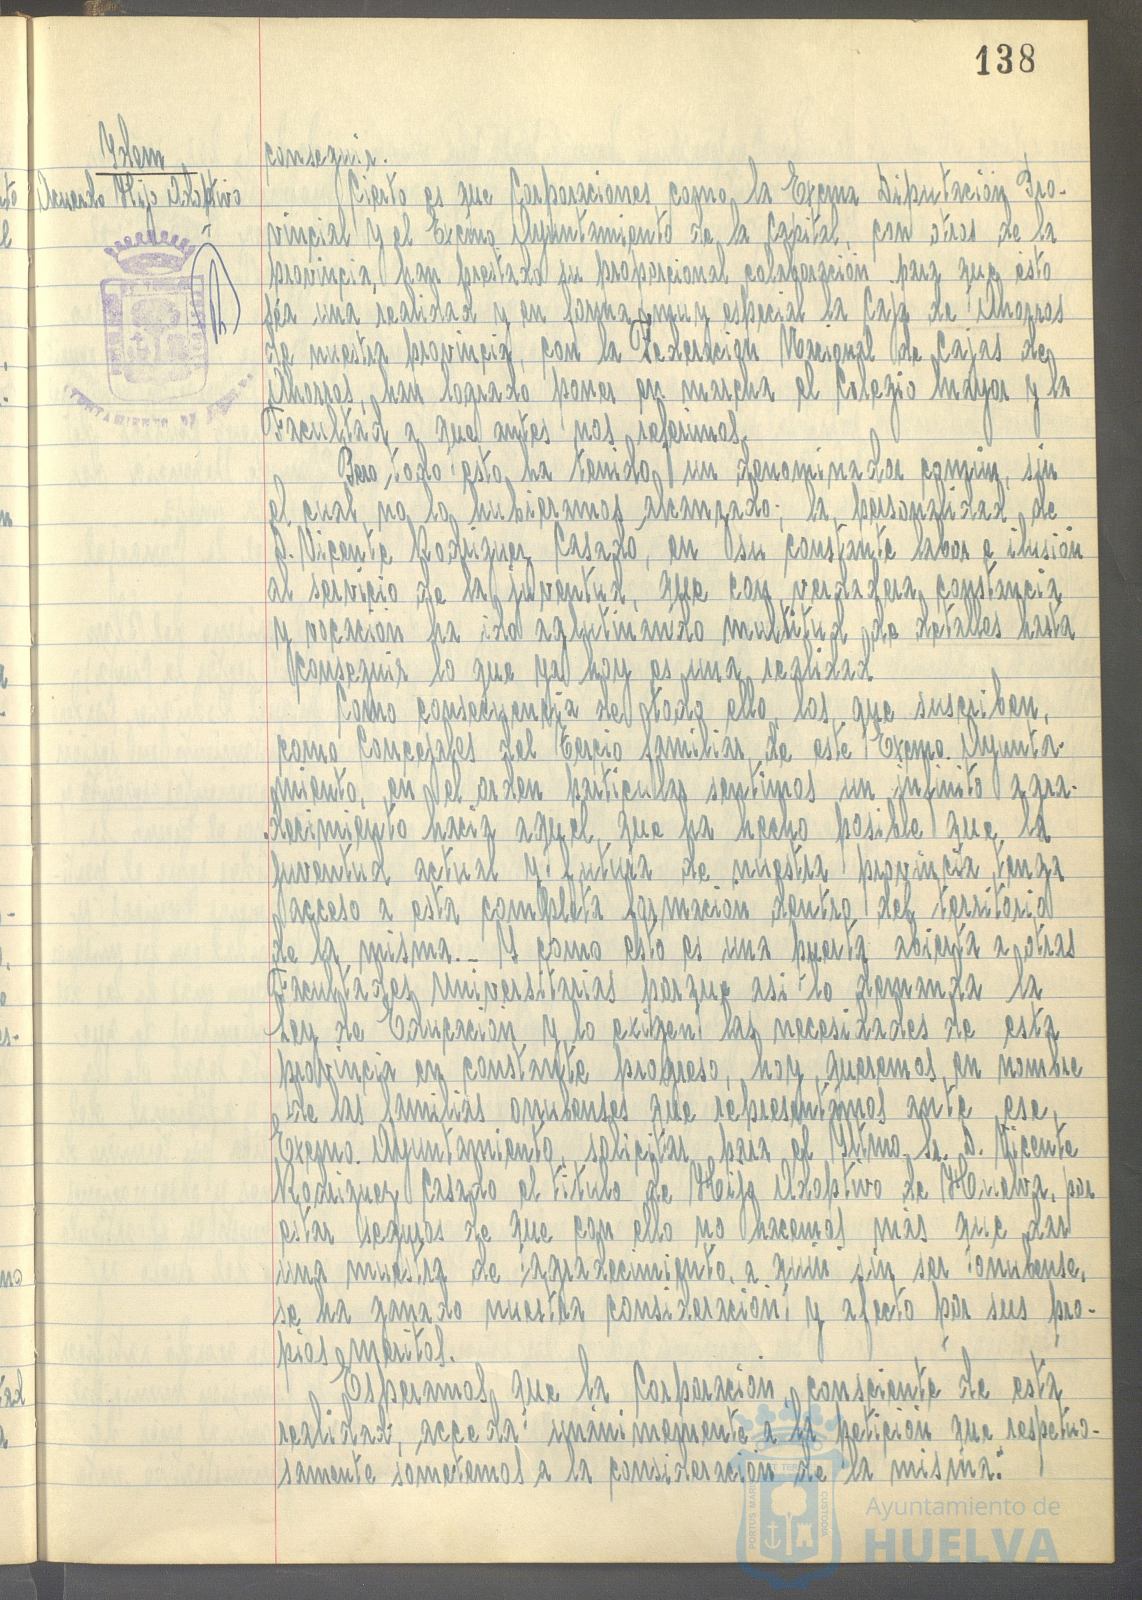 138
Idem
Acuerdo Hijo Adoptivo
conseguir.
Cierto es que Corporaciones como la Excma Diputación Pro-
vincial y el Excmo. Ayuntamiento de la Capital, con otros de la
provincia, han prestado su proporcional colaboración para que esto
séa una realidad y en forma muy especial la Caja de Ahorros
de nuestra provincia, con la Federación Nacional de Cajas de
Ahorros, han logrado poner en marcha el Colegio Mayor y la
Facultad a que antes nos referimos.
Pero todo esto ha tenido un denominador común, sin
el cual no lo hubieramos alcanzado; la personalidad de
D. Vicente Rodriguez Casado, en su constante labor e ilusión
al servicio de la juventud, que con verdadera constancia
y vocación ha ido aglutinando multitud de detalles hasta
conseguir lo que ya hoy es una realidad
Como consecuencia de todo ello, los que suscriben,
como Concejales del Tercio familiar de este Excmo. Ayunta-
miento, en el orden particular sentimos un infinito agra-
decimiento hacia aquel, que ha hecho posible que la
juventud actual y futura de nuestra provincia tenga
acceso a esta completa formación dentro del territorio
de la misma.- Y como esto es una puerta abierta a otras
Facultades Universitarias porque asi lo demanda la
Ley de Educación y lo exigen las necesidades de esta
provincia en constante progreso, hoy queremos en nombre
de las familias onubenses que representamos ante ese,
Excmo. Ayuntamiento, solicitar para el Iltmo. Sr. D. Vicente
Rodriguez Casado el titulo de Hijo Adoptivo de Huelva, por
estar seguros de que con ello no hacemos más que dar
una muestra de agradecimiento, a quién sin ser onubense,
se ha ganado nuestra consideración y afecto por sus pro-
pios meritos.
Esperamos que la Corporación, consciente de esta
realidad, acceda unánimemente a la petición que respetuo-
samente sometemos a la consideración de la misma."
Ayuntamiento de
HUELVA